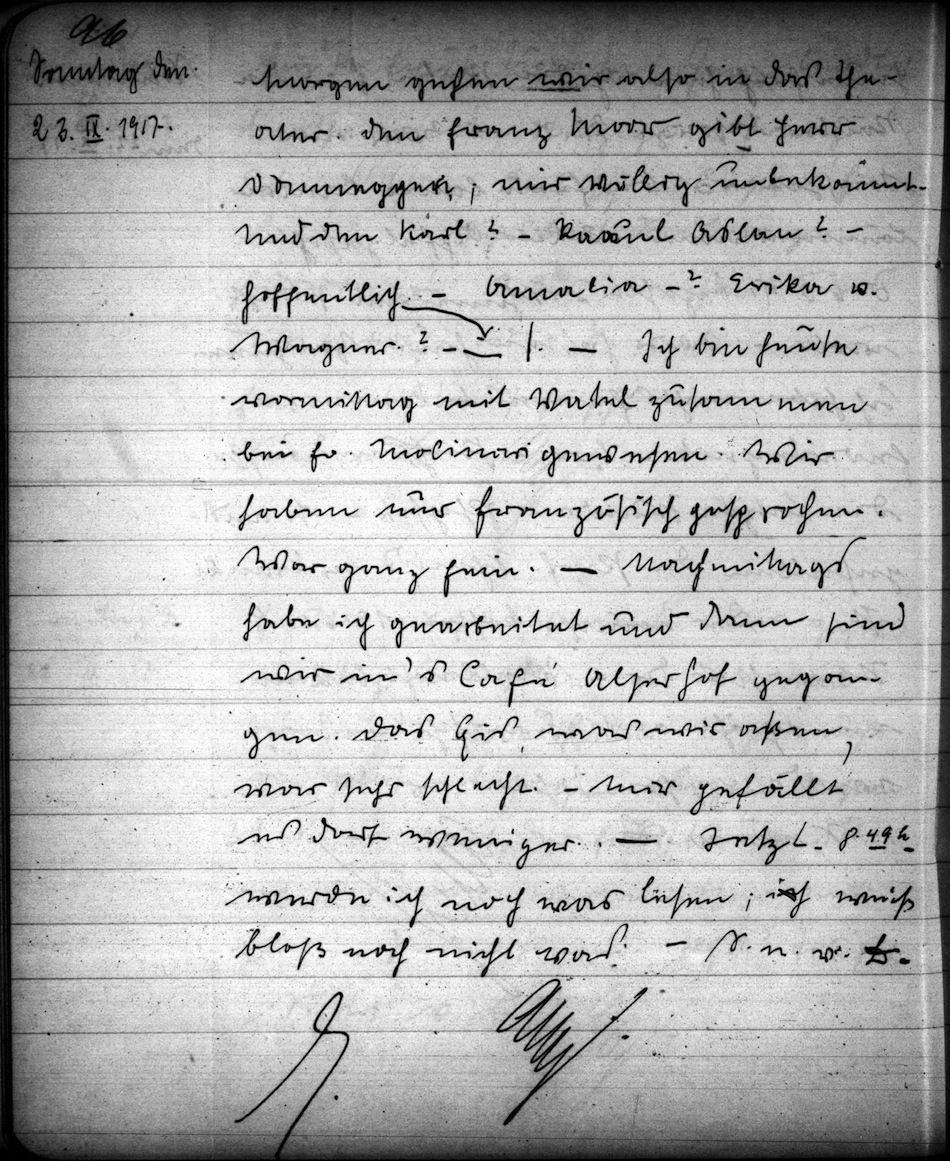 96
Sonntag den
23. IX. 1917.
Morgen gehen wir also in das The-
ater. Den Franz Moor gibt Herr
; mir völlig unbekannt.
Und den Karl? - Raoul Aslan? -
hoffentlich - Amalia -? Erika v.
Wagner? - - !. — Ich bin heute
vormittag mit Vatel zusammen
bei Fr. Molinari gewesen. Wir
haben nur französisch gesprochen.
War ganz fein. — Nachmittags
habe ich gearbeitet und dann sind
wir in's Café Alserhof gegan-
gen. Das Eis, was wir aßen,
war sehr schlecht. - Mir gefällt
es dort weniger. — Jetzt - 8 49 h -
werde ich noch was lesen; ich weiß
bloß noch nicht was. - S. n. v.